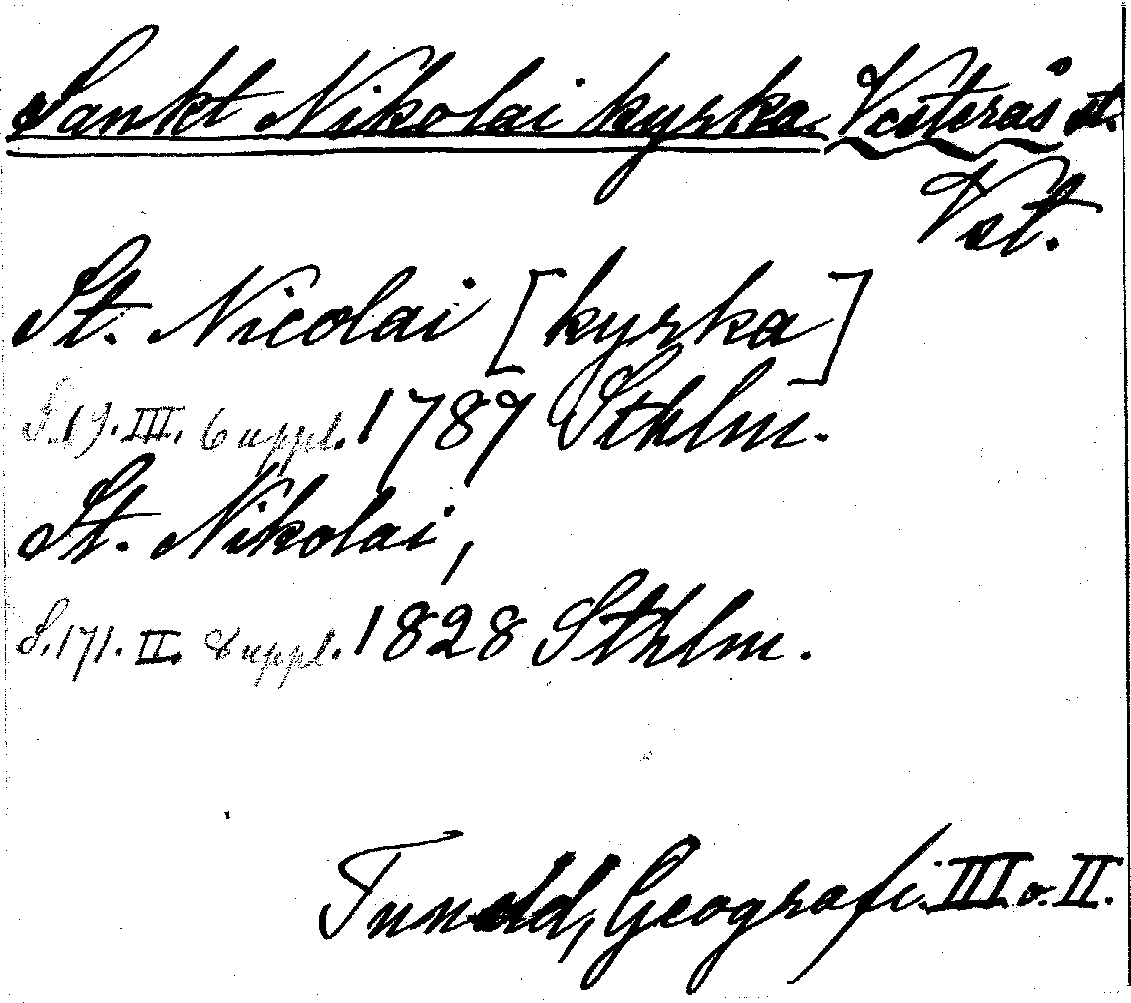 Sankt Nikolai kyrka. Västerås st.
Vst.
St. Nicolai [kyrka]
S. 19. III. 6 uppl. 1789 Sthlm.
St. Nikolai,
S. 171. II. 8 uppl. 1828 Sthlm.
Tuneld, Geografi. III o. II.